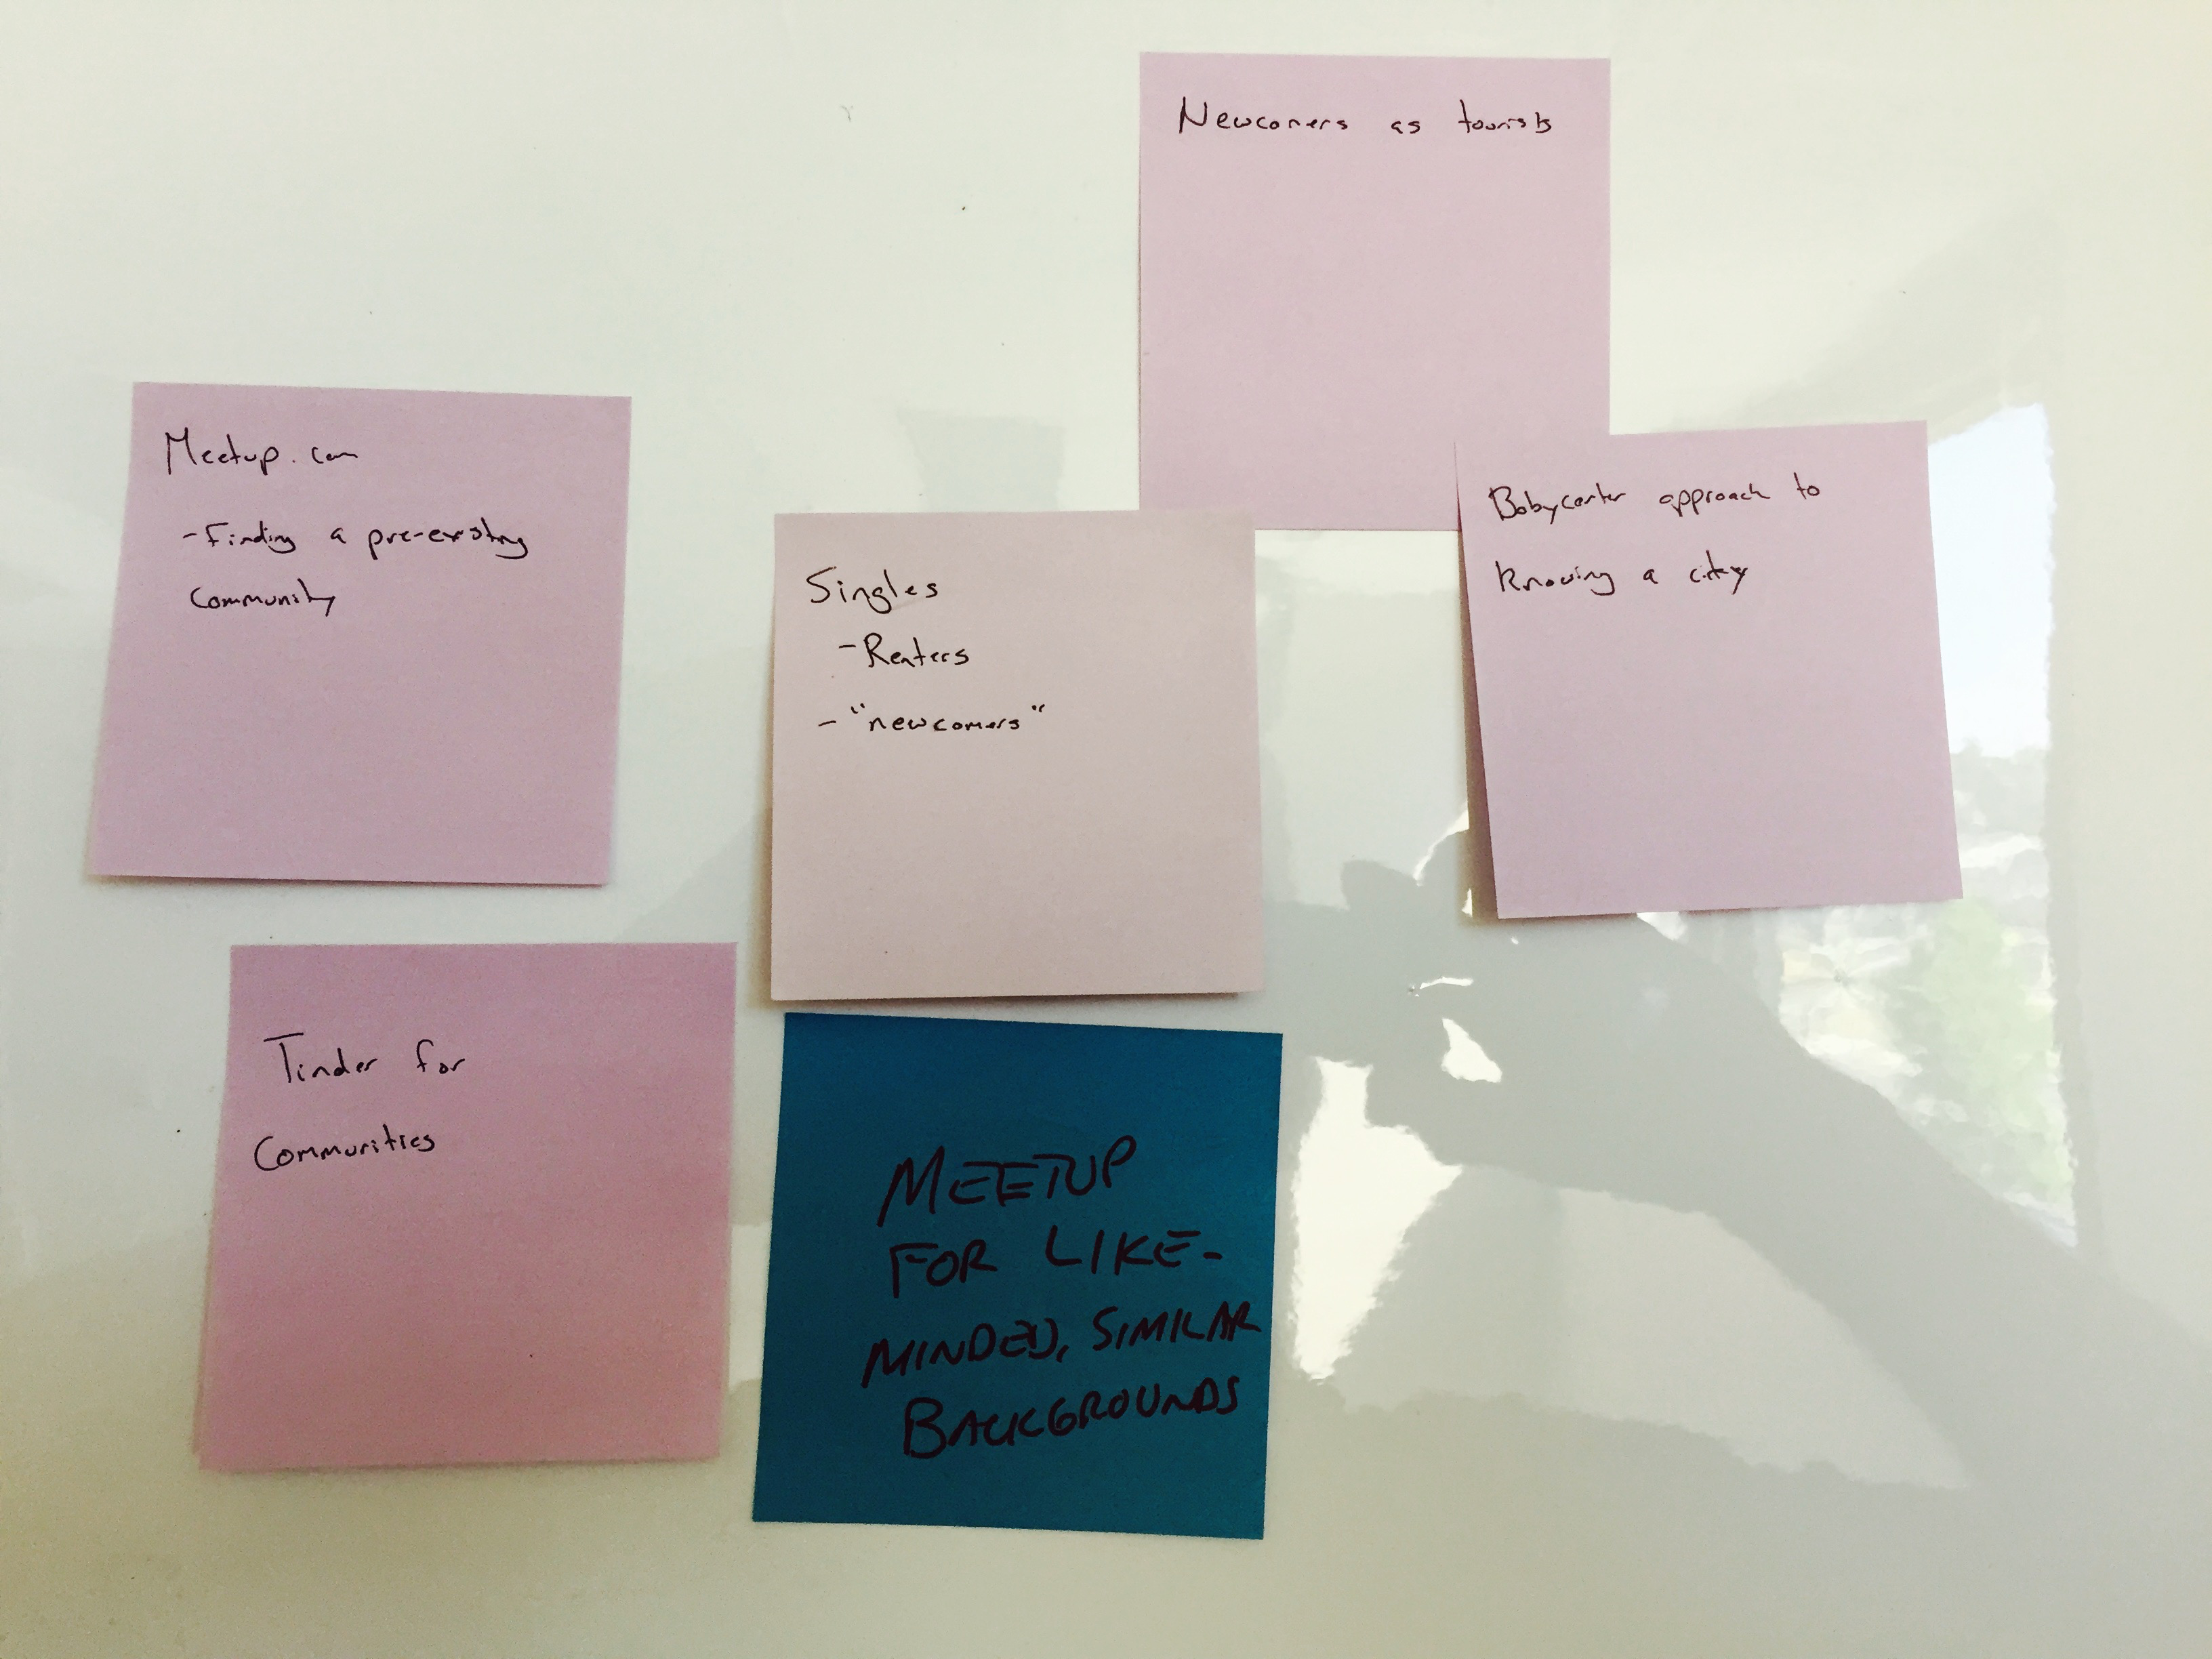 Newcomers as tourists
Meetup.com
- Finding a pre-existing
Community
Singles
- Renters
- "newcomers"
Babycenter approach to
Knowing a city
Tinder for
Communities
MEETUP
FOR LIKE-
MINDED, SIMILAR
BACKGROUNDS